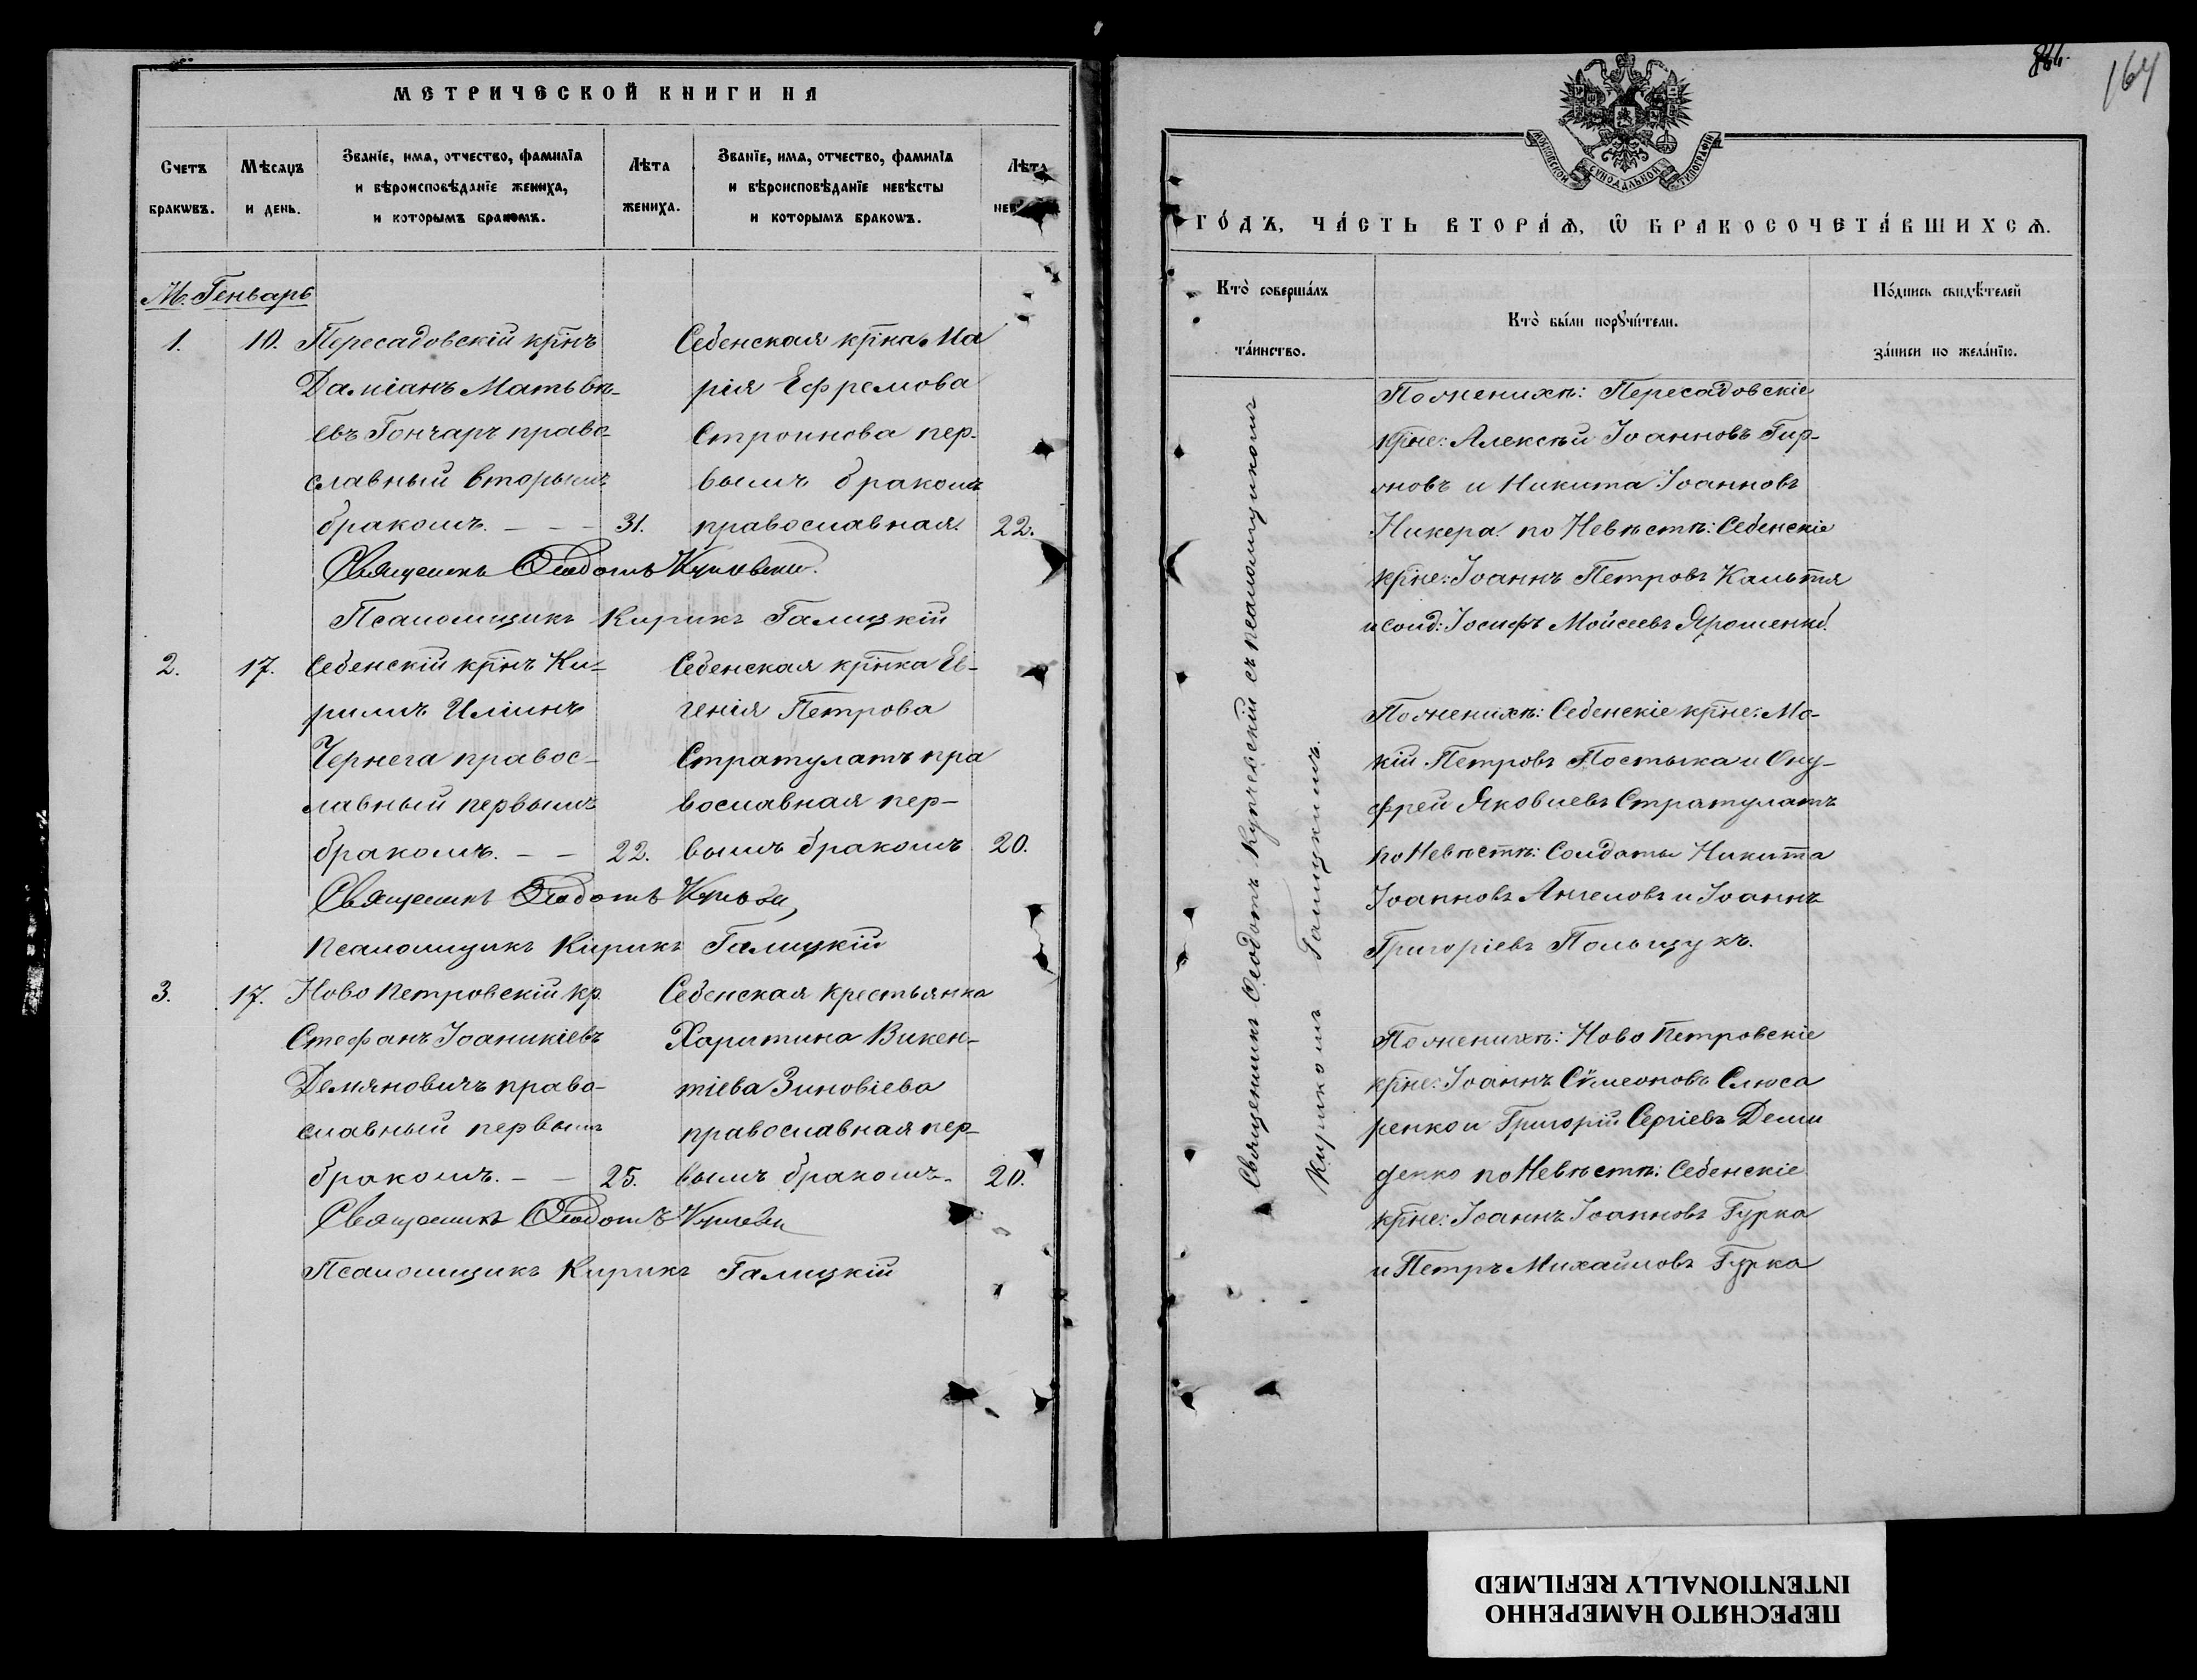 МЕТРИЧЕСКОЙ КНИГИ НА
Счетъ браковъ.
Мѣсяцъ и день.
Званїе, имя, отчество, фамилїя и вѣроисповѣданїе жениха, и которымъ бракомъ.
Лѣта жениха.
Званїе, имя, отчество, фамилїя и вѣроисповѣданїе невѣсты и которымъ бракомъ.
Лѣта
М. Генварь
1. 10. Пересадовскій кр̅нъ
Даміанъ Матьвѣ-
евъ Гончаръ право-
славный вторымъ
бракомъ. - - - 31.
Себенская кр̅нка Ма
рія Ефремова
Строинова пер-
вымъ бракомъ
православная. 22.
Священникъ Ѳеодотъ
Псаломщикъ Кирикъ Галицкій
2. 17. Себенскій кр̅нъ Ки-
рилъ Иліинъ
Чернега правос-
лавный первымъ
бракомъ. - - 22.
Себенская кр̅нка Ев-
генія Петрова
Стратулатъ пра
вославная пер-
вымъ бракомъ 20.
Священникъ Ѳеодотъ
Псаломщикъ Кирикъ Галицкій
3. 17. Ново Петровскій кр.
Стефанъ Іоаникіевъ
Демяновичъ право-
славный первымъ
бракомъ. - - 25.
Себенская крестьянка
Харитина Викен-
тіева Зиновіева
православная пер-
вымъ бракомъ. 20.
Священникъ Ѳеодотъ
Псаломщикъ Кирикъ Галицкій
164
МОСКОВСКОЙ СѴНОДАЛЬНОЙ ТИПОГРАФІИ
ГО́ДЪ, ЧА́СТЬ ВТОРА́Ѧ, Ѿ БРАКОСОЧЕТА́ВШИХСѦ.
Кто̀ соверша́лъ та́инство.
Кто̀ бы́ли порꙋчи́тели.
По́дпись свидѣ́телей за́писи по жела́нїю.
Священникъ Ѳеодотъ Купчевскій съ псаломщикомъ
Кирикомъ Галицкимъ.
По женихѣ: Пересадовскіе
кр̅не: Алексѣй Іоанновъ Гир-
жовъ и Никита Іоанновъ
Никера. по Невѣстѣ: Себенскіе
кр̅не: Іоаннъ Петровъ Кальтя
и солд: Іосифъ Мойсеевъ Ярошенко.
По женихѣ: Себенскіе кр̅не: Мо-
кій Петровъ Постыка и Ону-
фрей Яковлевъ Стратулатъ
по Невѣстѣ: Солдаты Никита
Іоанновъ Ангеловъ и Іоаннъ
Григоріевъ Польщукъ.
По женихѣ: Ново Петровскіе
кр̅не: Іоаннъ Сѵмеоновъ Слюса
ренко и Григорій Сергіевъ Деми
денко по Невѣстѣ: Себенскіе
кр̅не: Іоаннъ Іоанновъ Гурка
и Петръ Михайловъ Гурка
ПЕРЕСНЯТО НАМЕРЕННО
INTENTIONALLY REFILMED